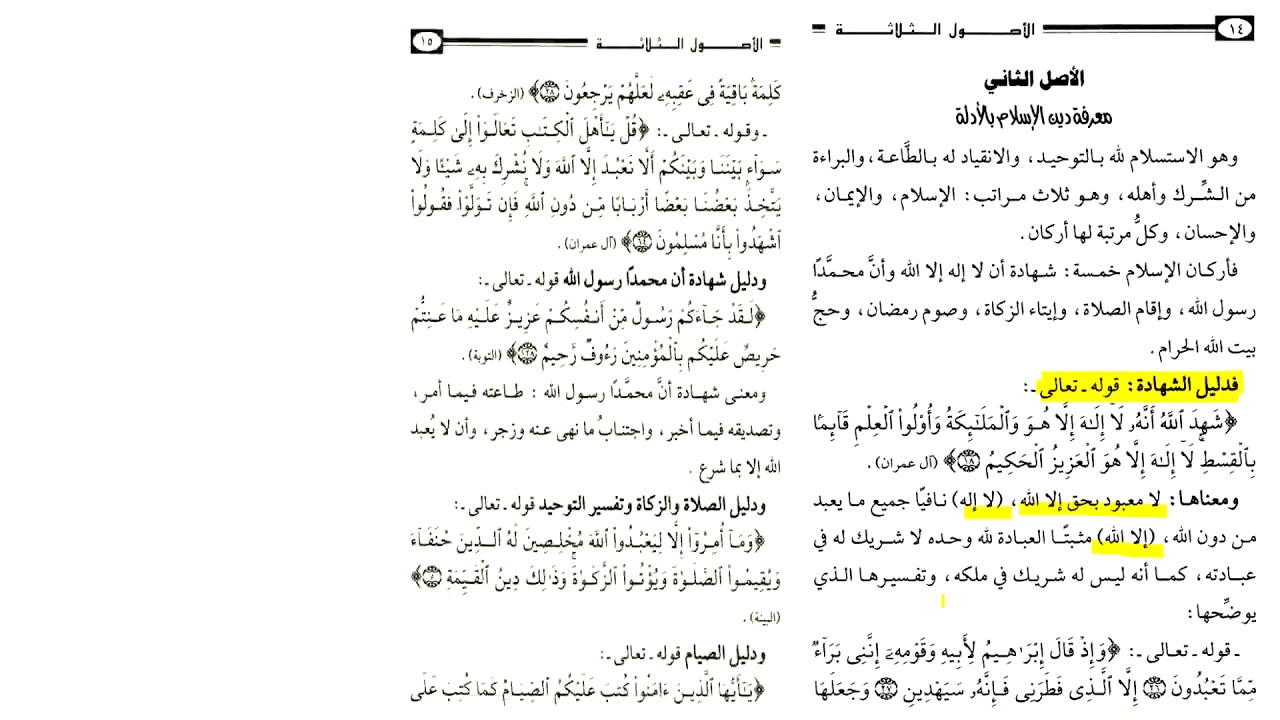 ١٤ الأصول الثلاثة
الأصل الثاني
معرفة دين الإسلام بالأدلة
وهو الاستسلام لله بالتوحيد، والانقياد له بالطَّاعة، والبراءة
من الشِّرك وأهله، وهو ثلاث مراتب: الإسلام، والإيمان،
والإحسان، وكلُّ مرتبة لها أركان.
فأركان الإسلام خمسة: شهادة أن لا إله إلا الله وأنَّ محمَّدًا
رسول الله، وإقام الصلاة، وإيتاء الزكاة، وصوم رمضان، وحجُّ
بيت الله الحرام.
فدليل الشهادة: قوله ـ تعالى ـ:
﴿شَهِدَ ٱللَّهُ أَنَّهُۥ لَآ إِلَٰهَ إِلَّا هُوَ وَٱلْمَلَٰٓئِكَةُ وَأُو۟لُوا۟ ٱلْعِلْمِ قَآئِمًۢا
بِٱلْقِسْطِ ۚ لَآ إِلَٰهَ إِلَّا هُوَ ٱلْعَزِيزُ ٱلْحَكِيمُ ١٨﴾ (آل عمران).
ومعناها: لا معبود بحق إلا الله، (لا إله) نافيًا جميع ما يعبد
من دون الله، (إلا الله) مثبتًا العبادة لله وحده لا شريك له في
عبادته، كما أنه ليس له شريك في ملكه، وتفسيرها الذي
يوضِّحها:
ـ قوله ـ تعالى ـ: ﴿وَإِذْ قَالَ إِبْرَٰهِيمُ لِأَبِيهِ وَقَوْمِهِۦٓ إِنَّنِى بَرَآءٌ
مِّمَّا تَعْبُدُونَ ٢٦ إِلَّا ٱلَّذِى فَطَرَنِى فَإِنَّهُۥ سَيَهْدِينِ ٢٧ وَجَعَلَهَا
الأصول الثلاثة ١٥
كَلِمَةًۢ بَاقِيَةً فِى عَقِبِهِۦ لَعَلَّهُمْ يَرْجِعُونَ ٢٨﴾ (الزخرف).
ـ وقوله ـ تعالى ـ: ﴿قُلْ يَٰٓأَهْلَ ٱلْكِتَٰبِ تَعَالَوْا۟ إِلَىٰ كَلِمَةٍ
سَوَآءٍۭ بَيْنَنَا وَبَيْنَكُمْ أَلَّا نَعْبُدَ إِلَّا ٱللَّهَ وَلَا نُشْرِكَ بِهِۦ شَيْـًٔا وَلَا
يَتَّخِذَ بَعْضُنَا بَعْضًا أَرْبَابًا مِّن دُونِ ٱللَّهِ ۚ فَإِن تَوَلَّوْا۟ فَقُولُوا۟
ٱشْهَدُوا۟ بِأَنَّا مُسْلِمُونَ ٦٤﴾ (آل عمران).
ودليل شهادة أن محمدًا رسول الله قوله ـ تعالى ـ:
﴿لَقَدْ جَآءَكُمْ رَسُولٌ مِّنْ أَنفُسِكُمْ عَزِيزٌ عَلَيْهِ مَا عَنِتُّمْ
حَرِيصٌ عَلَيْكُم بِٱلْمُؤْمِنِينَ رَءُوفٌ رَّحِيمٌ ١٢٨﴾ (التوبة).
ومعنى شهادة أنَّ محمَّدًا رسول الله : طاعته فيما أمر،
وتصديقه فيما أخبر، واجتنابُ ما نهى عنه وزجر، وأن لا يُعبد
الله إلا بما شرع .
ودليل الصلاة والزكاة وتفسير التوحيد قوله ـ تعالى ـ:
﴿وَمَآ أُمِرُوٓا۟ إِلَّا لِيَعْبُدُوا۟ ٱللَّهَ مُخْلِصِينَ لَهُ ٱلدِّينَ حُنَفَآءَ
وَيُقِيمُوا۟ ٱلصَّلَوٰةَ وَيُؤْتُوا۟ ٱلزَّكَوٰةَ ۚ وَذَٰلِكَ دِينُ ٱلْقَيِّمَةِ ٥﴾
(البينة).
ودليل الصيام قوله ـ تعالى ـ:
﴿يَٰٓأَيُّهَا ٱلَّذِينَ ءَامَنُوا۟ كُتِبَ عَلَيْكُمُ ٱلصِّيَامُ كَمَا كُتِبَ عَلَى